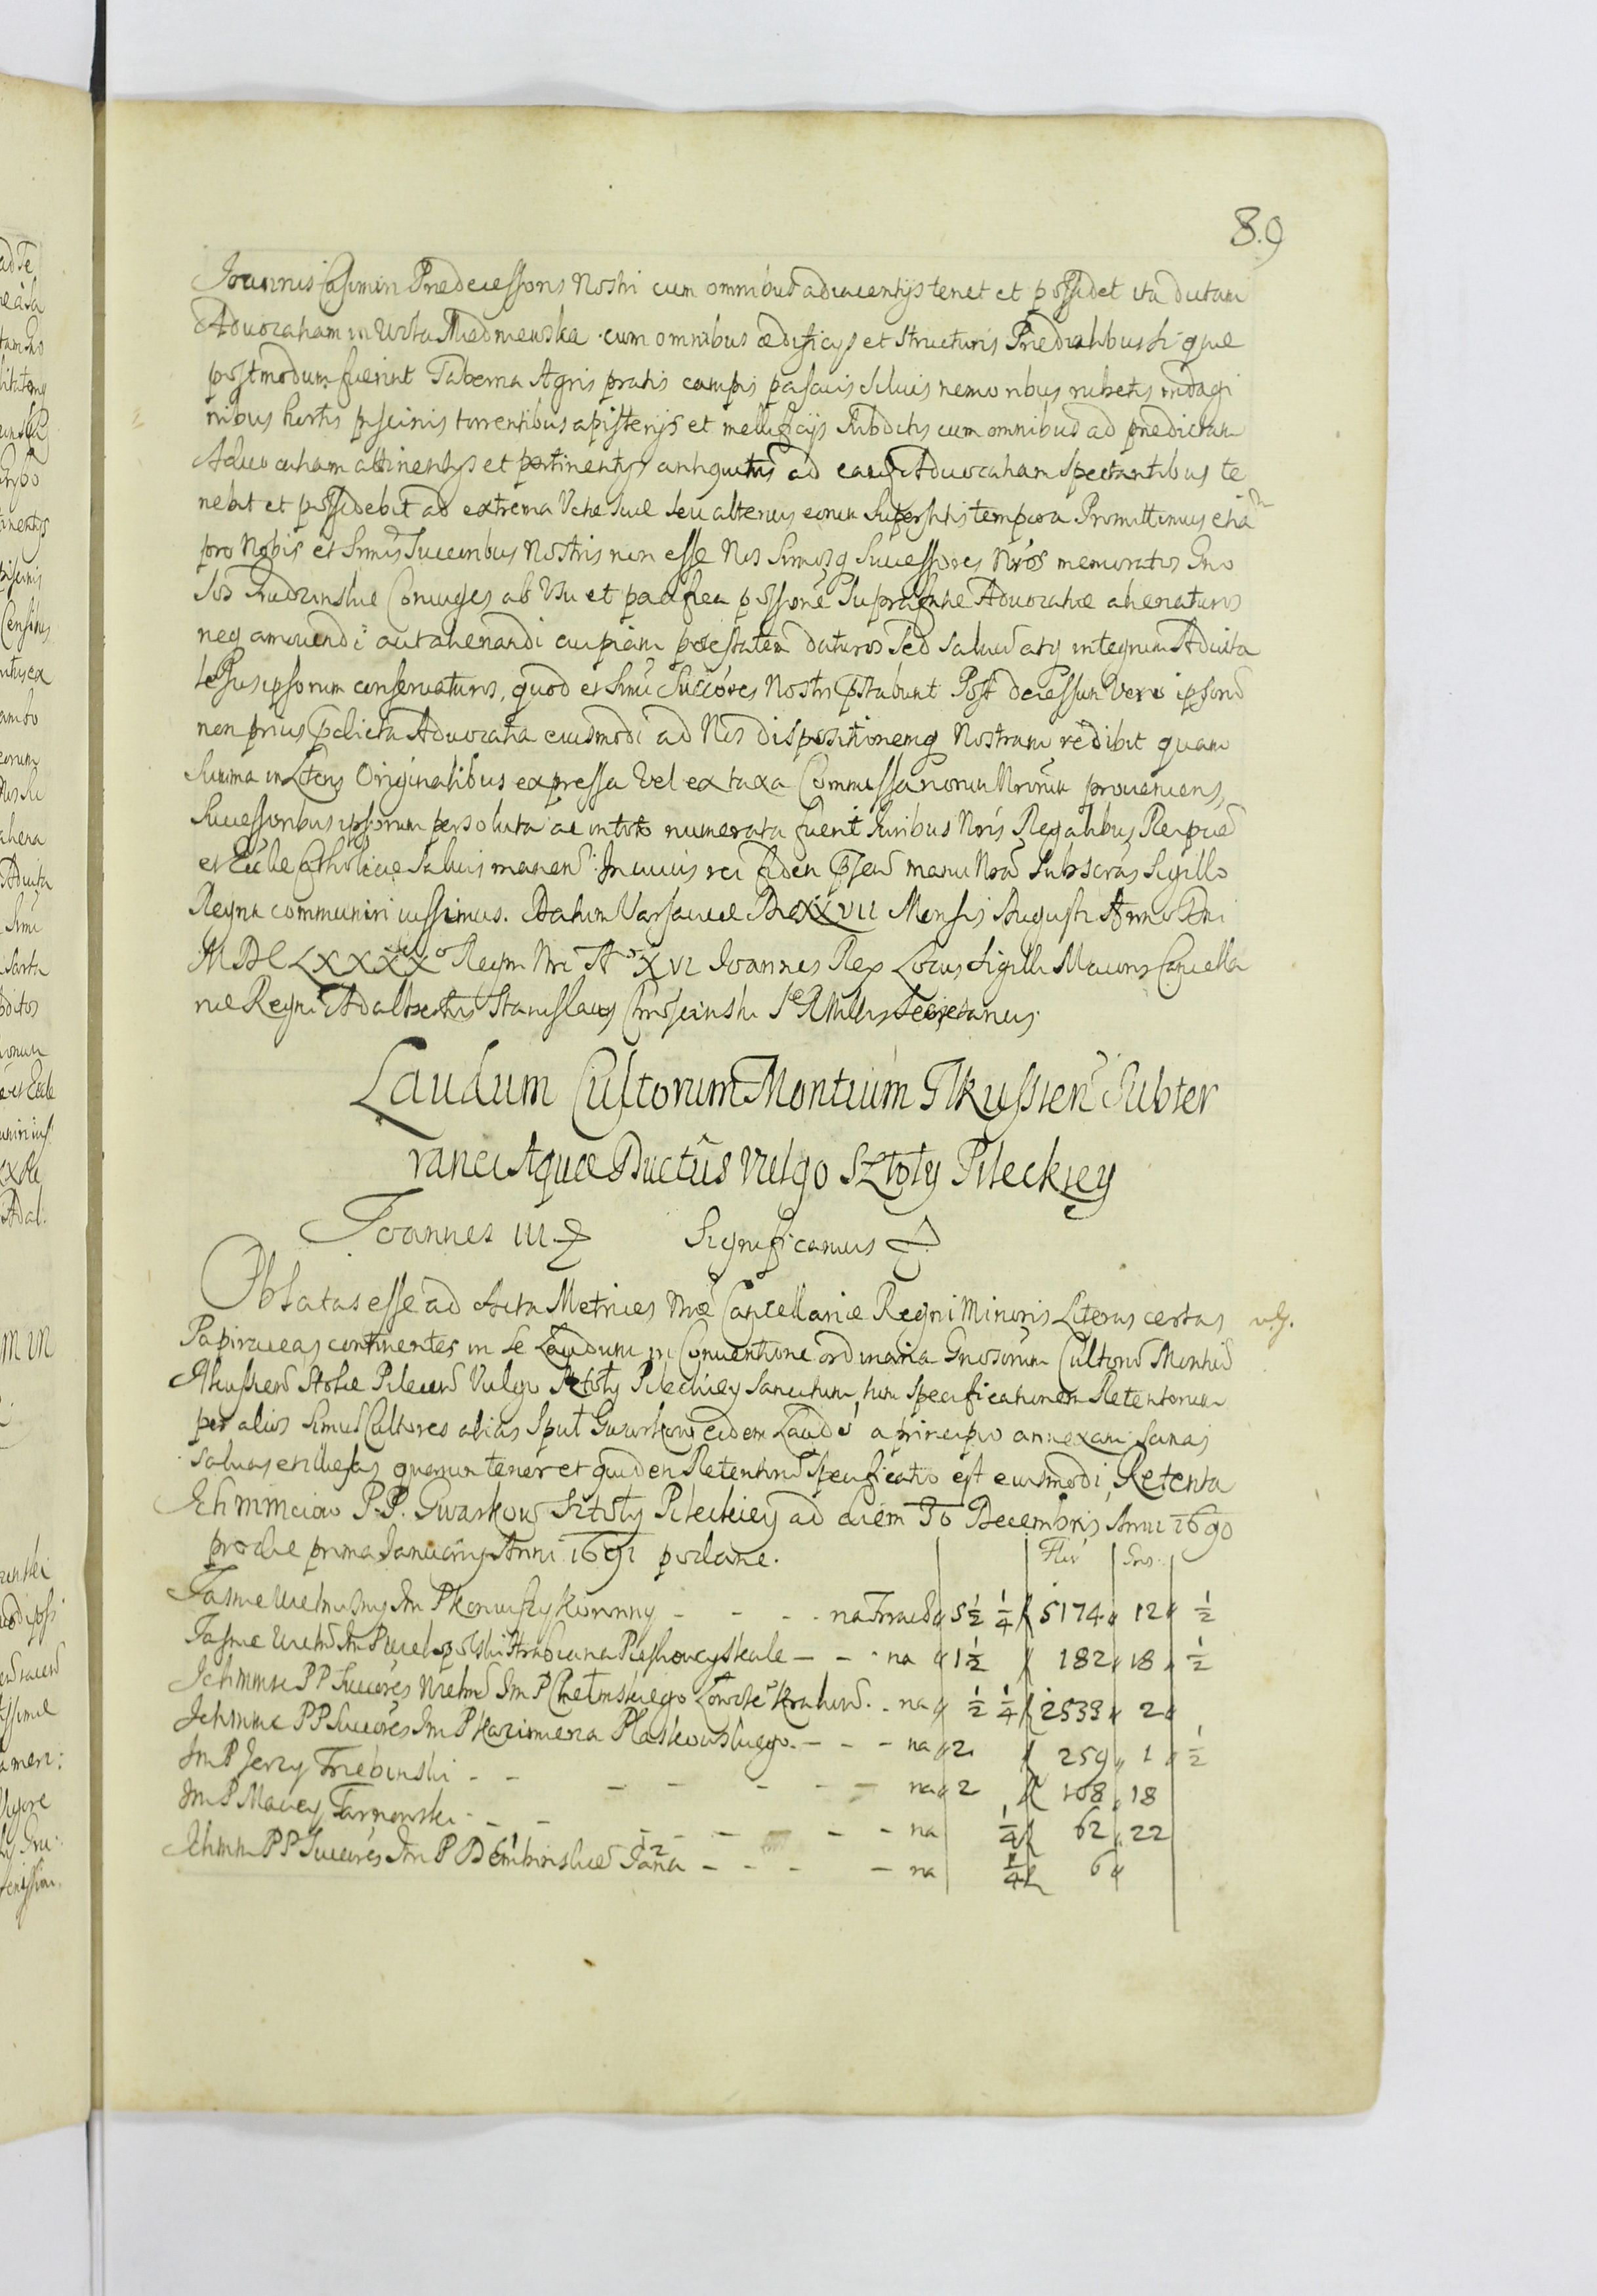 89
Joannis Casimiri Praedecessoris Nostri cum omnibus adiacentijs tenet et possidet ita dictam
Advocatiam in Villa Miedniewska cum omnibus aedificijs et structuris Praedialibus si quae
postmodum fuerint Taberna Agris pratis campis pascuis Siluis nemoribus rubetis indagi
nibus hortis piscinis torrentibus apisterijs et mellificijs Subditis cum omnibus ad praedictam
Aduocatiam attinentijs et pertinentijs antiquitus ad eand Aduocatiam spectantibus te
nebit et possidebit ad extrema Vitae suae seu alterius eorum Superstitis tempora Promittimus etia
pro Nobis et Srmis Succoribus Nostris non esse Nos Srmosq Successores Nros memoratos Gno
sos Conjuges ab Usu et pacifica possone Suprascriptae Aduocatiae alienaturos
neq amouendi aut alienandi cuipiam potestatem daturos Sed saluu atq integrum Aduita
le Jus ipsorum conseruaturos, quod et Srmi Succores Nostri pstabunt Post decessum Vero ipsoru
non prius pdicta Aduocatia eiusmodi ad Nos dispositionemq Nostram redibit quam
Summa in Literis Originalibus expressa Vel ex taxa Commissariorum Nrorum proueniens,
Successoribus ipsorum persoluta ac in toto numerata fuerit Juribus Nris Regalibus Reipub
et Ecclae Catholicae Saluis manen. In cuius rei fidem psen manu Nra Subscras Sigillo
Regni communiri iussimus. Datum Varsauiae Die XXVII Mensis Augusti Anno Dni
MDCLXXXX Regni Nri Ao XVI Joannes Rex Locus Sigilli Maioris Cancella
riae Regni Adalbertus Stanislaus Chroscinski S R Mttis Secretarius
Laudum Cultorum Montium Ilkussien Subter
ranei Aquae Ductus Vulgo Sztoły Pileckiey
Joannes III Significamus
Oblatas esse ad Acta Metrices Nrae Cancellariae Regni Minoris Literas certas
Papiraceas continentes in se Laudum in Conuentione ordinaria Gnosorum Cultoru Montiu
Ilkussien Stolae Pilecen Vulgo Sztoły Pileckiey Sancitum, tum specificationem Retentorum
per alios Simul Cultores alias Gwarkow eidem Laudo a principio annexam Sanas
Saluas et illaesas quorum tenor et quidem Retentoru Specificatio est eiusmodi, Retenta
Ichmmciow P.P. Gwarkow Sztoły Pileckiey ad diem 30 Decembris Anni 1690
pro die prima January Anni 1691 podane. Flor Gro.
Jasnie Wielmozny Im P Koniuszy Koronny - - - na 5 1/2 1/4 5174 12 1/2
Jasnie Wielm Im P - - na 1 1/2 182 18 1/2
Ichmmci PP Succores Wielm Im P Chełmskiego - na 1/2 1/4 2533 2
Ichmmc PP Succores Im P Kazimierza - - - na 2 259 1 1/2
Im P Jerzy Trzebinski - - - - - - - na 2 108 18
Im P Maciey Tarnowski - - - - - - na 1/4 62 22
Ichmm PP Succores Im P Dembinskie Jana - - - - na 1/4 6